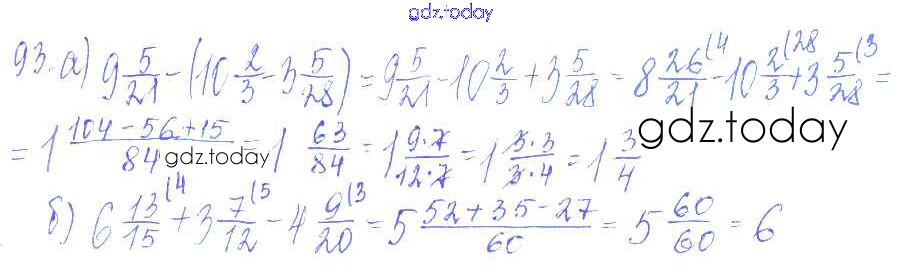 gdz.today
93. а) 9 5/21 - (10 2/3 - 3 5/28) = 9 5/21 - 10 2/3 + 3 5/28 = 8 26(4/21 - 10 2(28/3 + 3 5(3/28 =
= 1 104 - 56 + 15/84 = 1 63/84 = 1 9·7/12·7 = 1 3·3/3·4 = 1 3/4
gdz.today
gdz.today
б) 6 13(4/15 + 3 7(5/12 - 4 9(3/20 = 5 52 + 35 - 27/60 = 5 60/60 = 6